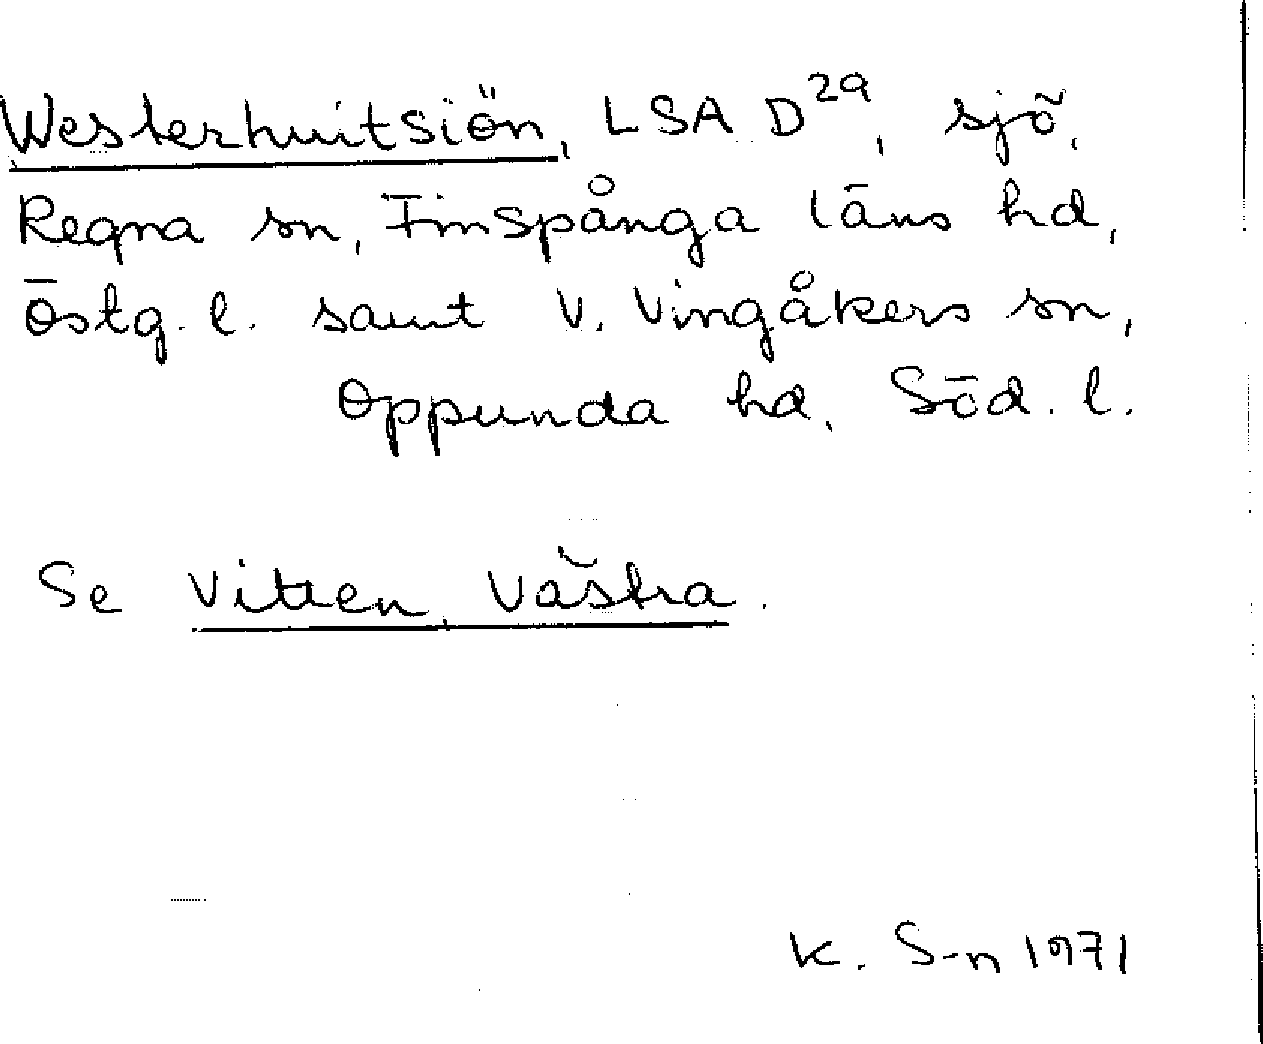 Westerhuitsiön, LSA D29, sjö,
Regna sn, Finspånga läns hd,
Östg. l. samt V. Vingåkers sn,
Oppunda hd, Söd. l.
Se Vitten, Västra.
K. S-n 1971